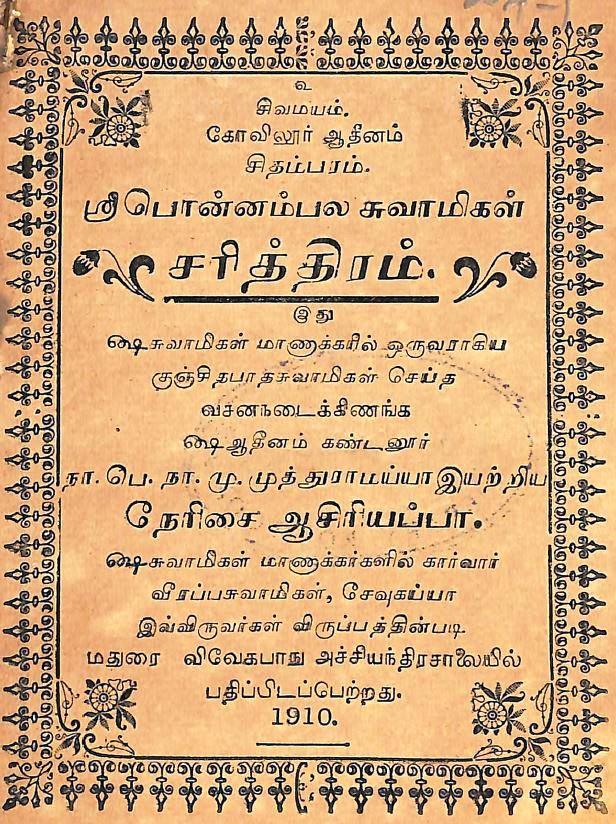 உ
சிவமயம்.
கோவிலூர் ஆதீனம்
சிதம்பரம்.
ஸ்ரீ பொன்னம்பல சுவாமிகள்
சரித்திரம்.
இது
௸ சுவாமிகள் மாணாக்கரில் ஒருவராகிய
குஞ்சிதபாதசுவாமிகள் செய்த
வசனநடைக்கிணங்க
௸ ஆதீனம் கண்டனூர்
நா. பெ. நா. மு. முத்துராமய்யா இயற்றிய
நேரிசை ஆசிரியப்பா.
௸ சுவாமிகள் மாணாக்கர்களில் கார்வார்
வீரப்பசுவாமிகள், சேவுகய்யா
இவ்விருவர்கள் விருப்பத்தின்படி
மதுரை விவேகபாநு அச்சியந்திரசாலையில்
பதிப்பிடப்பெற்றது.
1910.